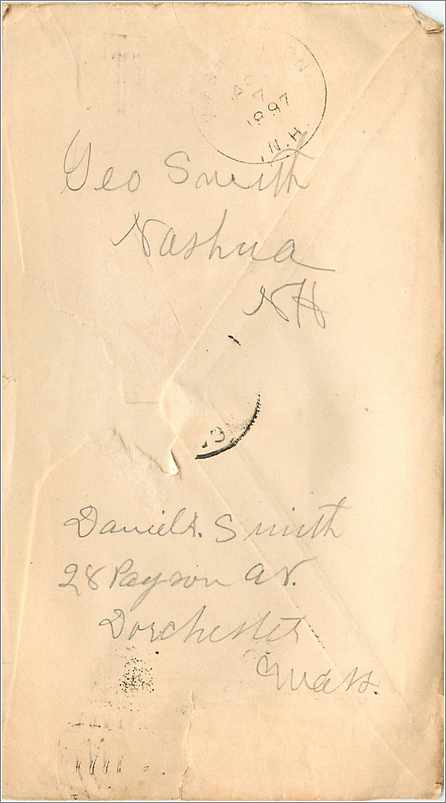 1897
N.H.
Geo Smith
Nashua
NH
Daniel S. Smith
28 Payson Av.
Dorchester
Mass.